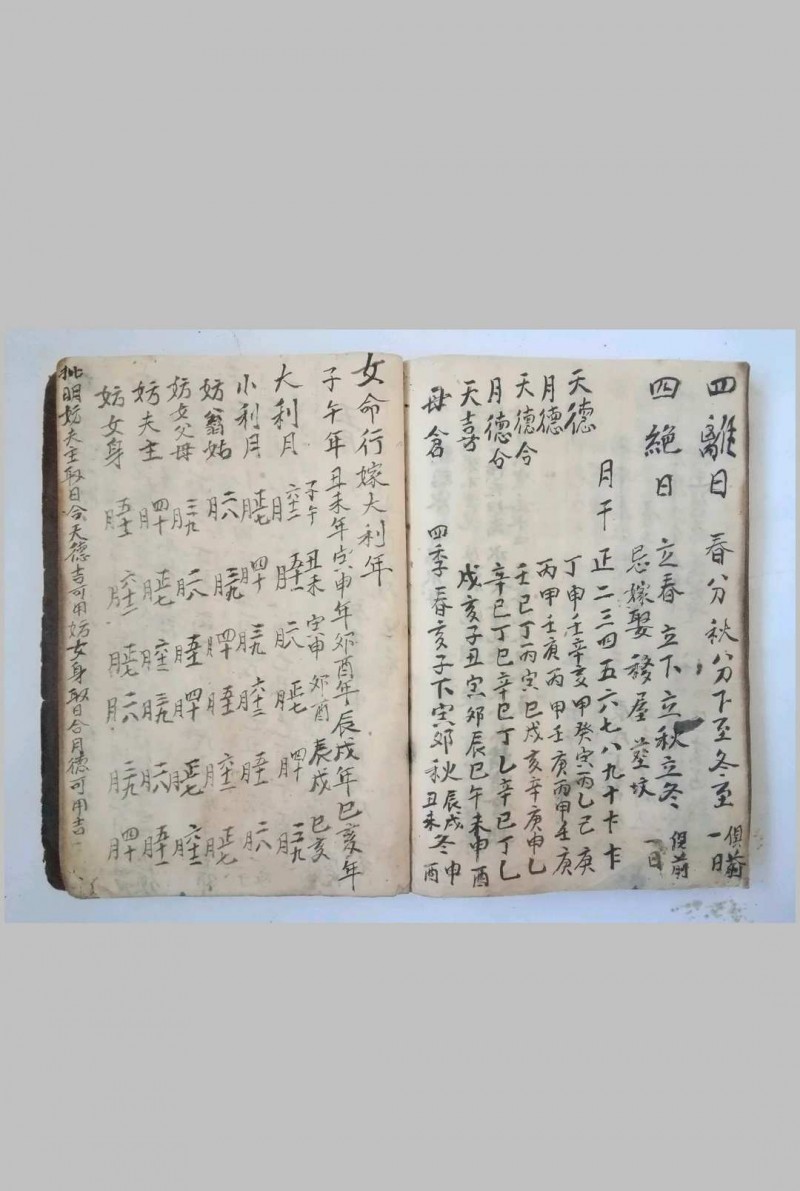 四離日 春分 秋分 下至 冬至 俱前一日
四絕日 立春 立下 立秋 立冬 俱前一日
忌嫁娶 移屋 葬坟
月干 正二三四五六七八九十
天德 丁申壬辛亥甲癸寅丙乙己庚
月德 丙甲壬庚丙甲壬庚丙甲壬庚
天德合 壬巳丁丙寅巳戊亥辛庚申乙
月德合 辛巳丁乙辛巳丁乙辛巳丁乙
天喜 戌亥子丑寅卯辰巳午未申酉
母倉 四季 春亥子 下寅卯 秋辰戌丑未 冬申酉
女命行嫁大利年
子午年 丑未年 寅申年 卯酉年 辰戌年 巳亥年
子午 丑未 寅申 卯酉 辰戌 巳亥
大利月 六十二月 五十一月 二八月 正七月 四十月 三九月
小利月 正七月 四十月 三九月 六十二月 五十一月 二八月
妨翁姑 二八月 三九月 四十月 五十一月 六十二月 正七月
妨女父母 三九月 二八月 五十一月 四十月 正七月 六十二月
妨夫主 四十月 正七月 六十二月 三九月 二八月 五十一月
妨女身 五十一月 六十二月 正七月 二八月 三九月 四十月
批明妨夫主取日合天德吉可用妨女身取日合月德可用吉